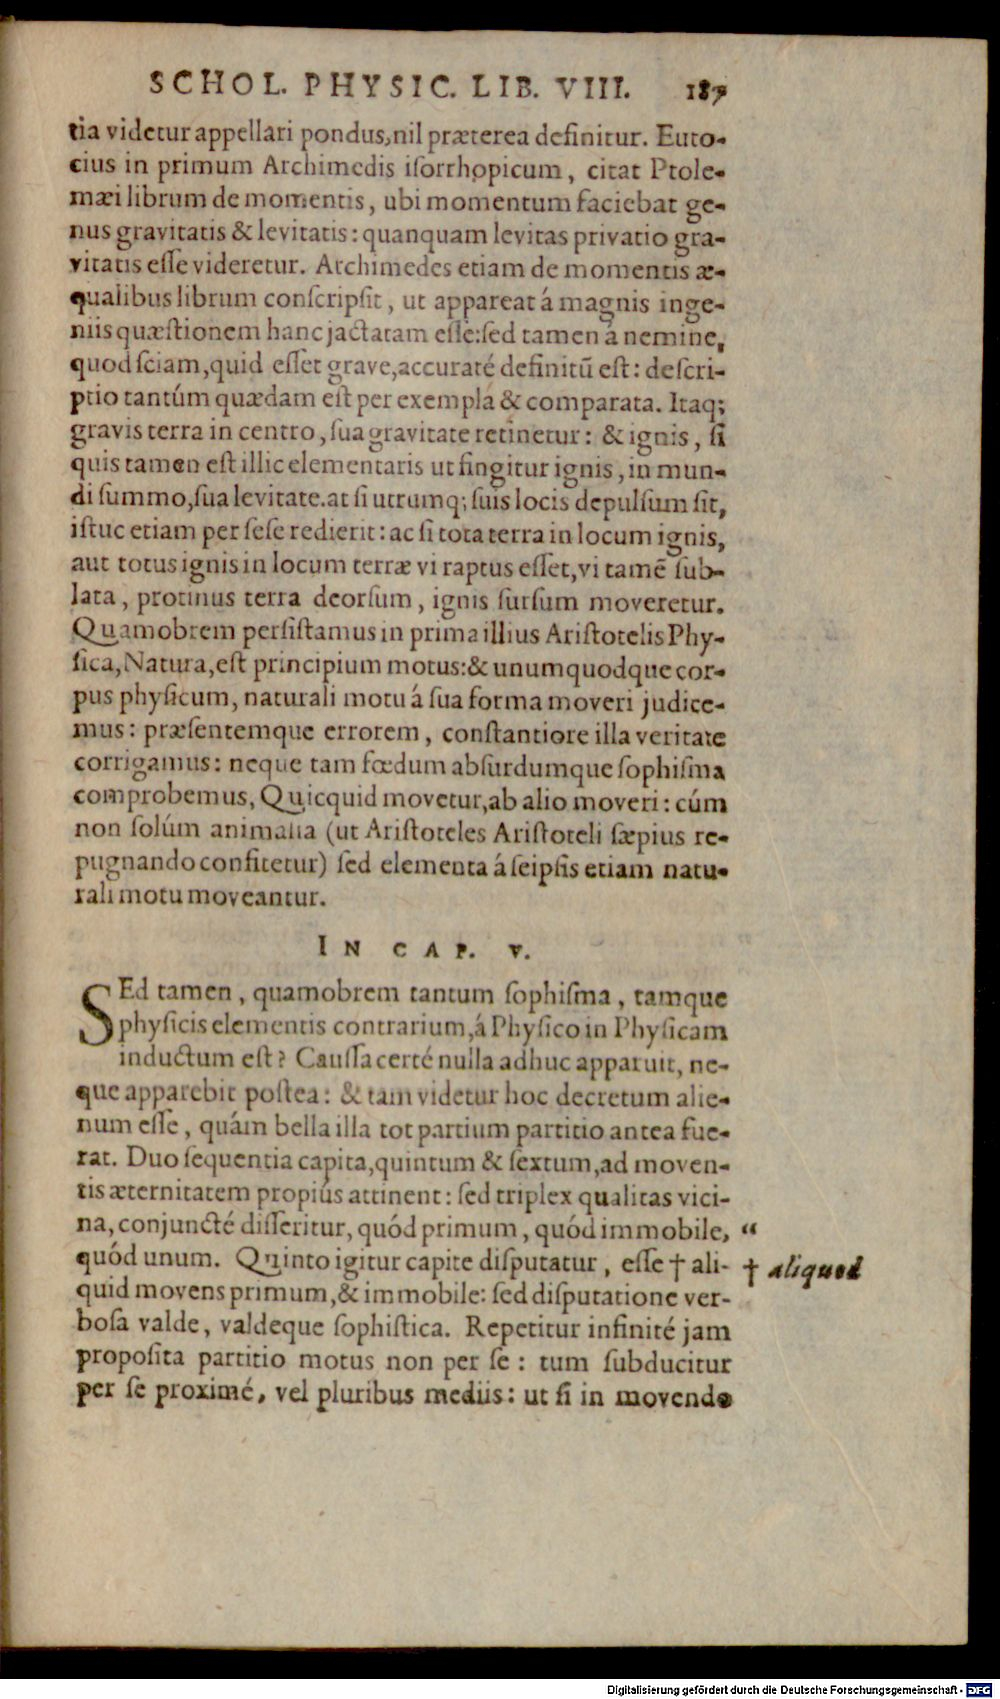 SCHOL. PHYSIC. LIB. VIII. 187
tia videtur appellari pondus, nil præterea definitur. Euto-
cius in primum Archimedis iſorrhopicum, citat Ptole-
mæi librum de momentis, ubi momentum faciebat ge-
nus gravitatis & levitatis: quanquam levitas privatio gra-
vitatis eſſe videretur. Archimedes etiam de momentis æ-
qualibus librum conſcripſit, ut appareat á magnis inge-
niis quæſtionem hanc jactatam eſſe: ſed tamen á nemine,
quod ſciam, quid eſſet grave, accuraté definitũ eſt: deſcri-
ptio tantúm quædam eſt per exempla & comparata. Itaq;
gravis terra in centro, ſua gravitate retinetur: & ignis, ſi
quis tamen eſt illic elementaris ut fingitur ignis, in mun-
di ſummo, ſua levitate. at ſi utrumq; ſuis locis depulſum ſit,
iſtuc etiam per ſeſe redierit: ac ſi tota terra in locum ignis,
aut totus ignis in locum terræ vi raptus eſſet, vi tamẽ ſub-
lata, protinus terra deorſum, ignis ſurſum moveretur.
Quamobrem perſiſtamus in prima illius Ariſtotelis Phy-
ſica, Natura, eſt principium motus: & unumquodque cor-
pus phyſicum, naturali motu á ſua forma moveri judice-
mus: præſentemque errorem, conſtantiore illa veritate
corrigamus: neque tam fœdum abſurdumque ſophiſma
comprobemus, Quicquid movetur, ab alio moveri: cúm
non ſolúm animalia (ut Ariſtoteles Ariſtoteli ſæpius re-
pugnando confitetur) ſed elementa á ſeipſis etiam natu-
rali motu moveantur.
IN CAP. V.
SEd tamen, quamobrem tantum ſophiſma, tamque
phyſicis elementis contrarium, á Phyſico in Phyſicam
inductum eſt? Cauſſa certé nulla adhuc apparuit, ne-
que apparebit poſtea: & tam videtur hoc decretum alie-
num eſſe, quám bella illa tot partium partitio antea fue-
rat. Duo ſequentia capita, quintum & ſextum, ad moven-
tis æternitatem propiús attinent: ſed triplex qualitas vici-
na, conjuncté diſſeritur, quód primum, quód immobile, “
quód unum. Quinto igitur capite diſputatur, eſſe † ali- † aliquod
quid movens primum, & immobile: ſed diſputatione ver-
boſa valde, valdeque ſophiſtica. Repetitur infinité jam
propoſita partitio motus non per ſe: tum ſubducitur
per ſe proximé, vel pluribus mediis: ut ſi in movendo
Digitalisierung gefördert durch die Deutsche Forschungsgemeinschaft - DFG